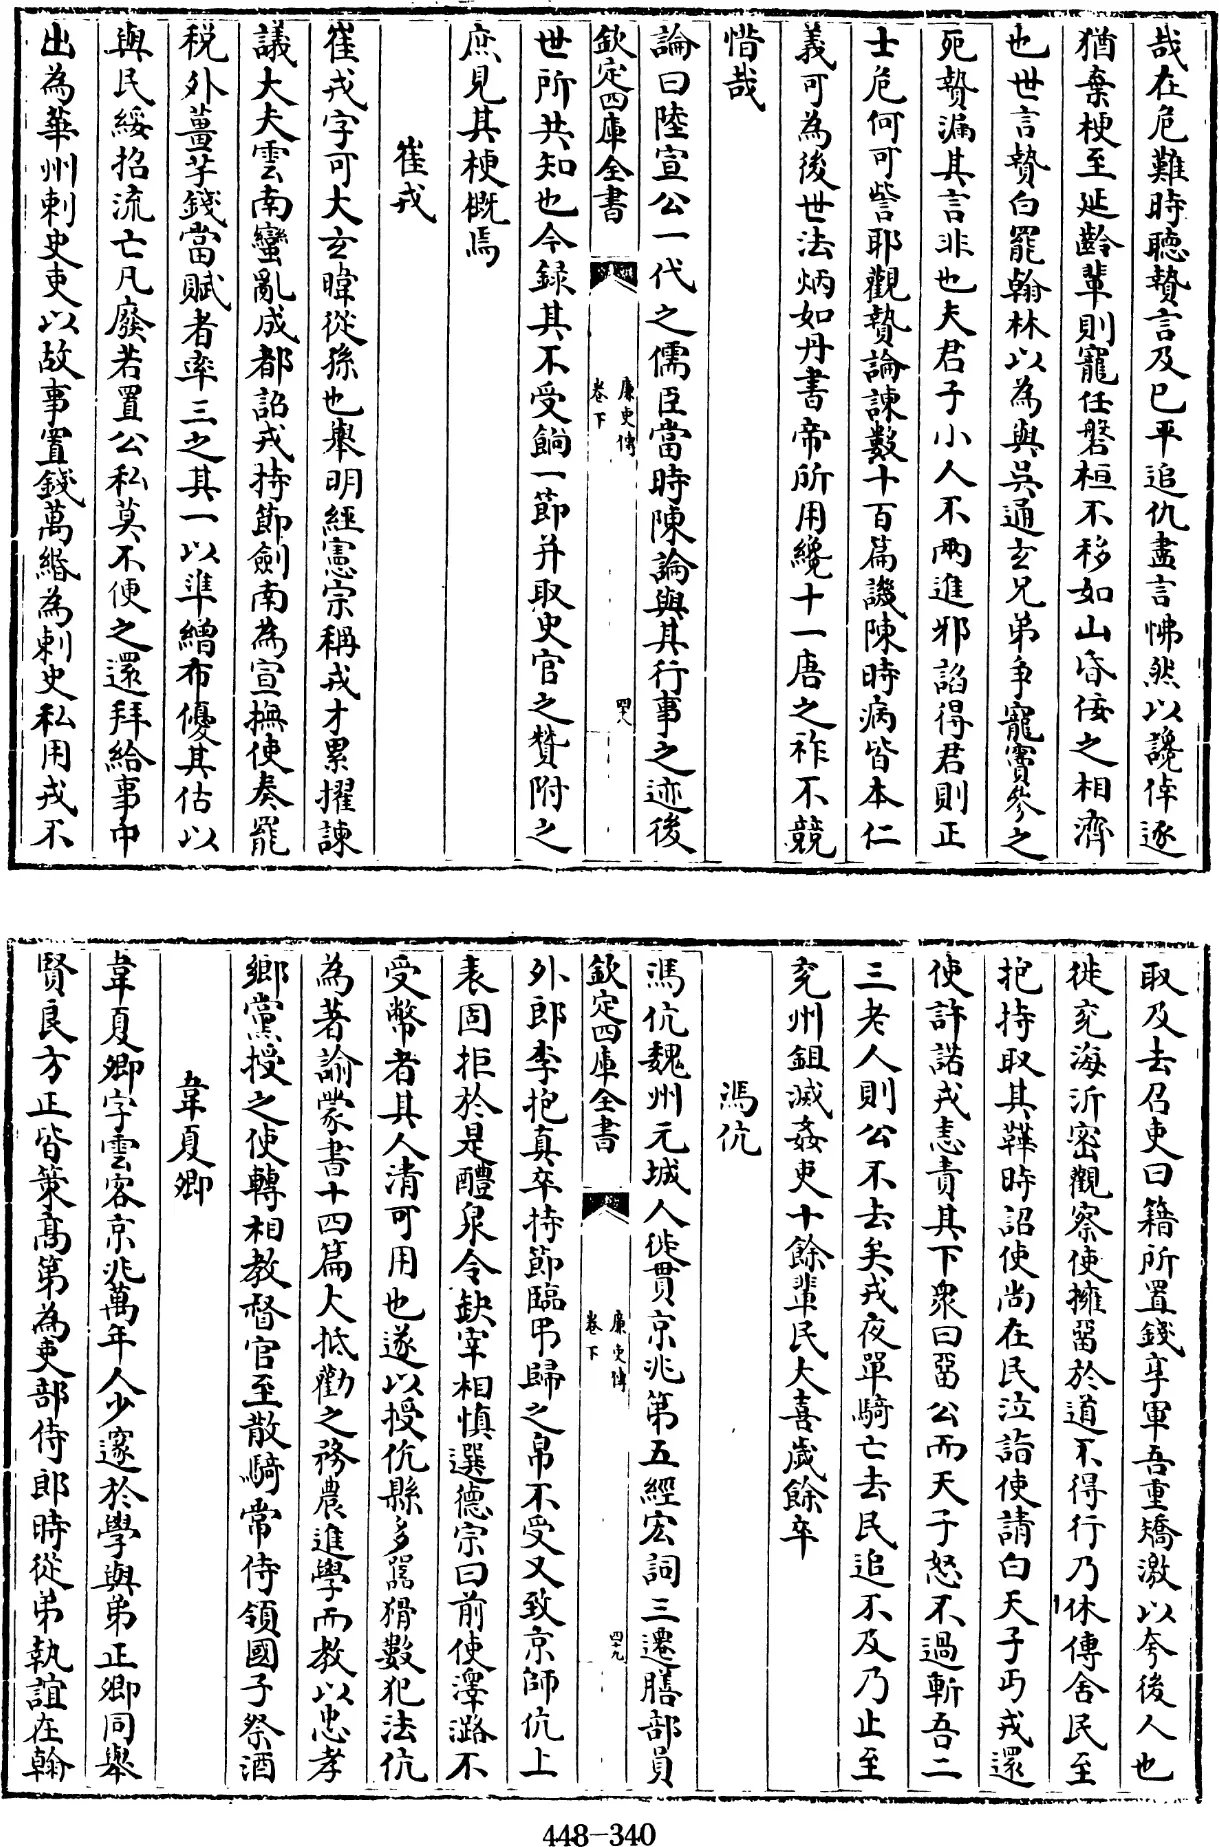 哉在危難時聽贄言及已平追仇盡言怫然以讒倖逐
猶棄梗至延齡軰則寵任磐桓不移如山昏佞之相濟
也世言贄白罷翰林以為與吳通玄兄弟争寵竇參之
死贄漏其言非也夫君子小人不兩進邪諂得君則正
士危何可訾耶觀贄論諫數十百篇譏陳時病皆本仁
義可為後世法炳如丹書帝所用纔十一唐之祚不競
惜哉
論曰陸宣公一代之儒臣當時陳論與其行事之迹後
欽定四庫全書
廉吏傳
卷下
四十八
世所共知也今録其不受餉一節并取史官之贊附之
庶見其梗概焉
崔戎
崔戎字可大玄暐從孫也舉明經憲宗稱戎才累擢諫
議大夫雲南蠻亂成都詔戎持節劍南為宣撫使奏罷
税外薑芋錢當賦者率三之其一以準繒布優其估以
與民綏招流亡凡廢若置公私莫不便之還拜給事中
出為華州刺史吏以故事置錢萬緡為刺史私用戎不
取及去召吏曰籍所置錢享軍吾重矯激以夸後人也
徙兖海沂密觀察使擁留於道不得行乃休傳舍民至
抱持取其鞾時詔使尚在民泣詣使請白天子丐戎還
使許諾戎恚責其下衆曰留公而天子怒不過斬吾二
三老人則公不去矣戎夜單騎亡去民追不及乃止至
兖州鉏滅姦吏十餘軰民大喜歲餘卒
馮伉
馮伉魏州元城人徙貫京兆第五經宏詞三遷膳部員
欽定四庫全書
廉吏傳
卷下
四十九
外郎李抱真卒持節臨弔歸之帛不受又致京師伉上
表固拒於是醴泉令缺宰相慎選德宗曰前使澤潞不
受幣者其人清可用也遂以授伉縣多嚚猾數犯法伉
為著諭蒙書十四篇大抵勸之務農進學而教以忠孝
鄉黨授之使轉相教督官至散騎常侍領國子祭酒
韋夏卿
韋夏卿字雲客京兆萬年人少邃於學與弟正卿同舉
賢良方正皆策高第為吏部侍郎時從弟執誼在翰
448-340